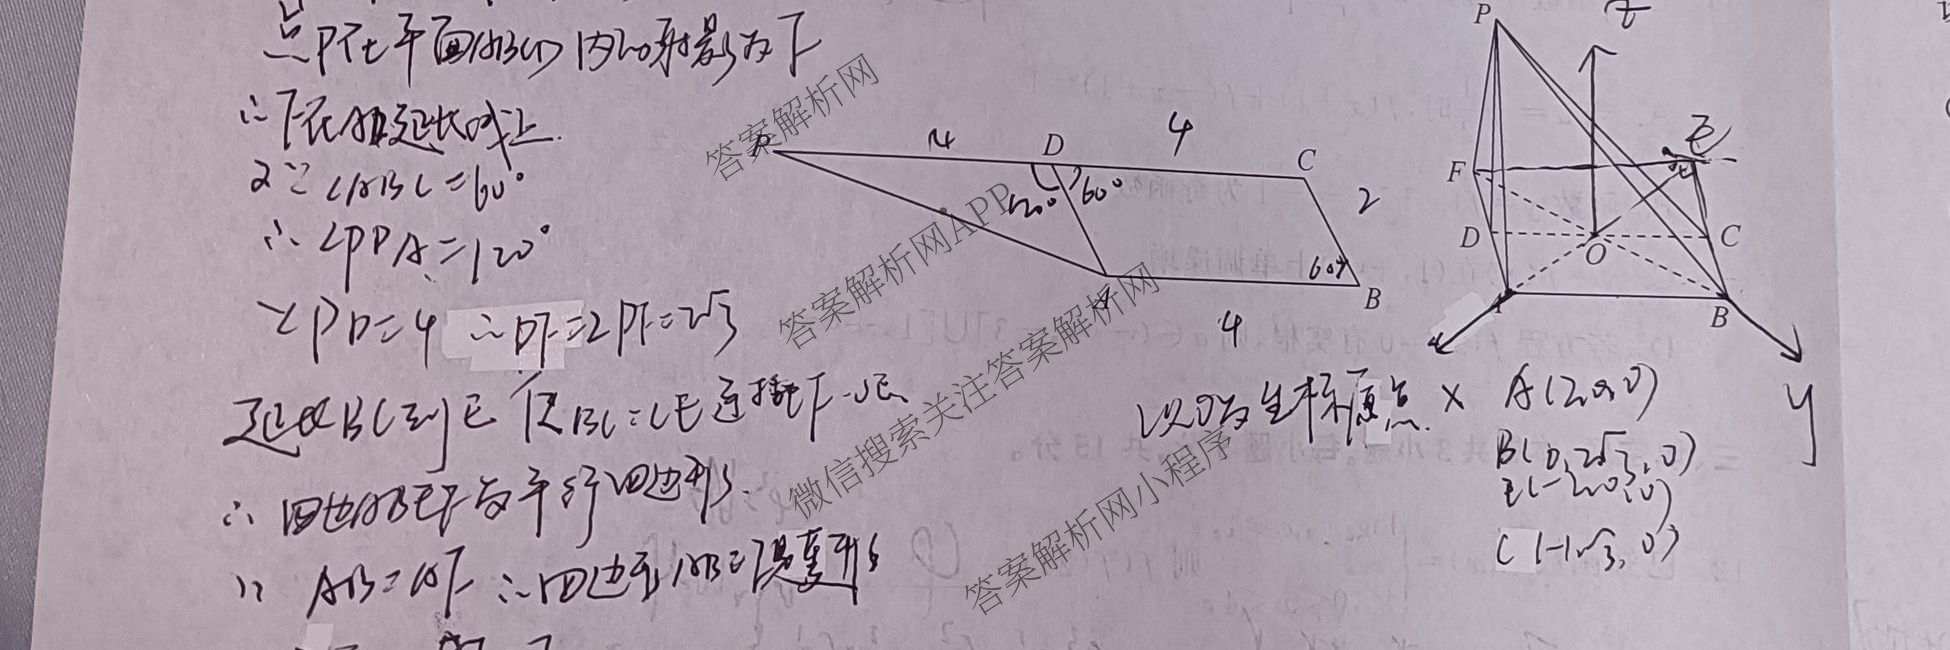 点P在平面ABCD内的射影为F
∴F在AD延长线上.
又∵∠ABC=60°
∴∠PDA=120°
又PD=4 ∴DF=2 PF=2√3
延长BC到E 使BC=CE 连接EF
∴四边ABEF为平行四边形.
∵ AB=AF ∴四边形ABEF是菱形
D
4
C
2
120°
60°
60°
B
A
4
P
z
E
F
D
O
C
A
B
x
y
以O为坐标原点.
A(2,0,0)
B(0,2√3,0)
E(-2,0,0)
C(-1,√3,0)
答案解析网
答案解析网APP
答案解析网
微信搜索关注答案解析网
答案解析网小程序